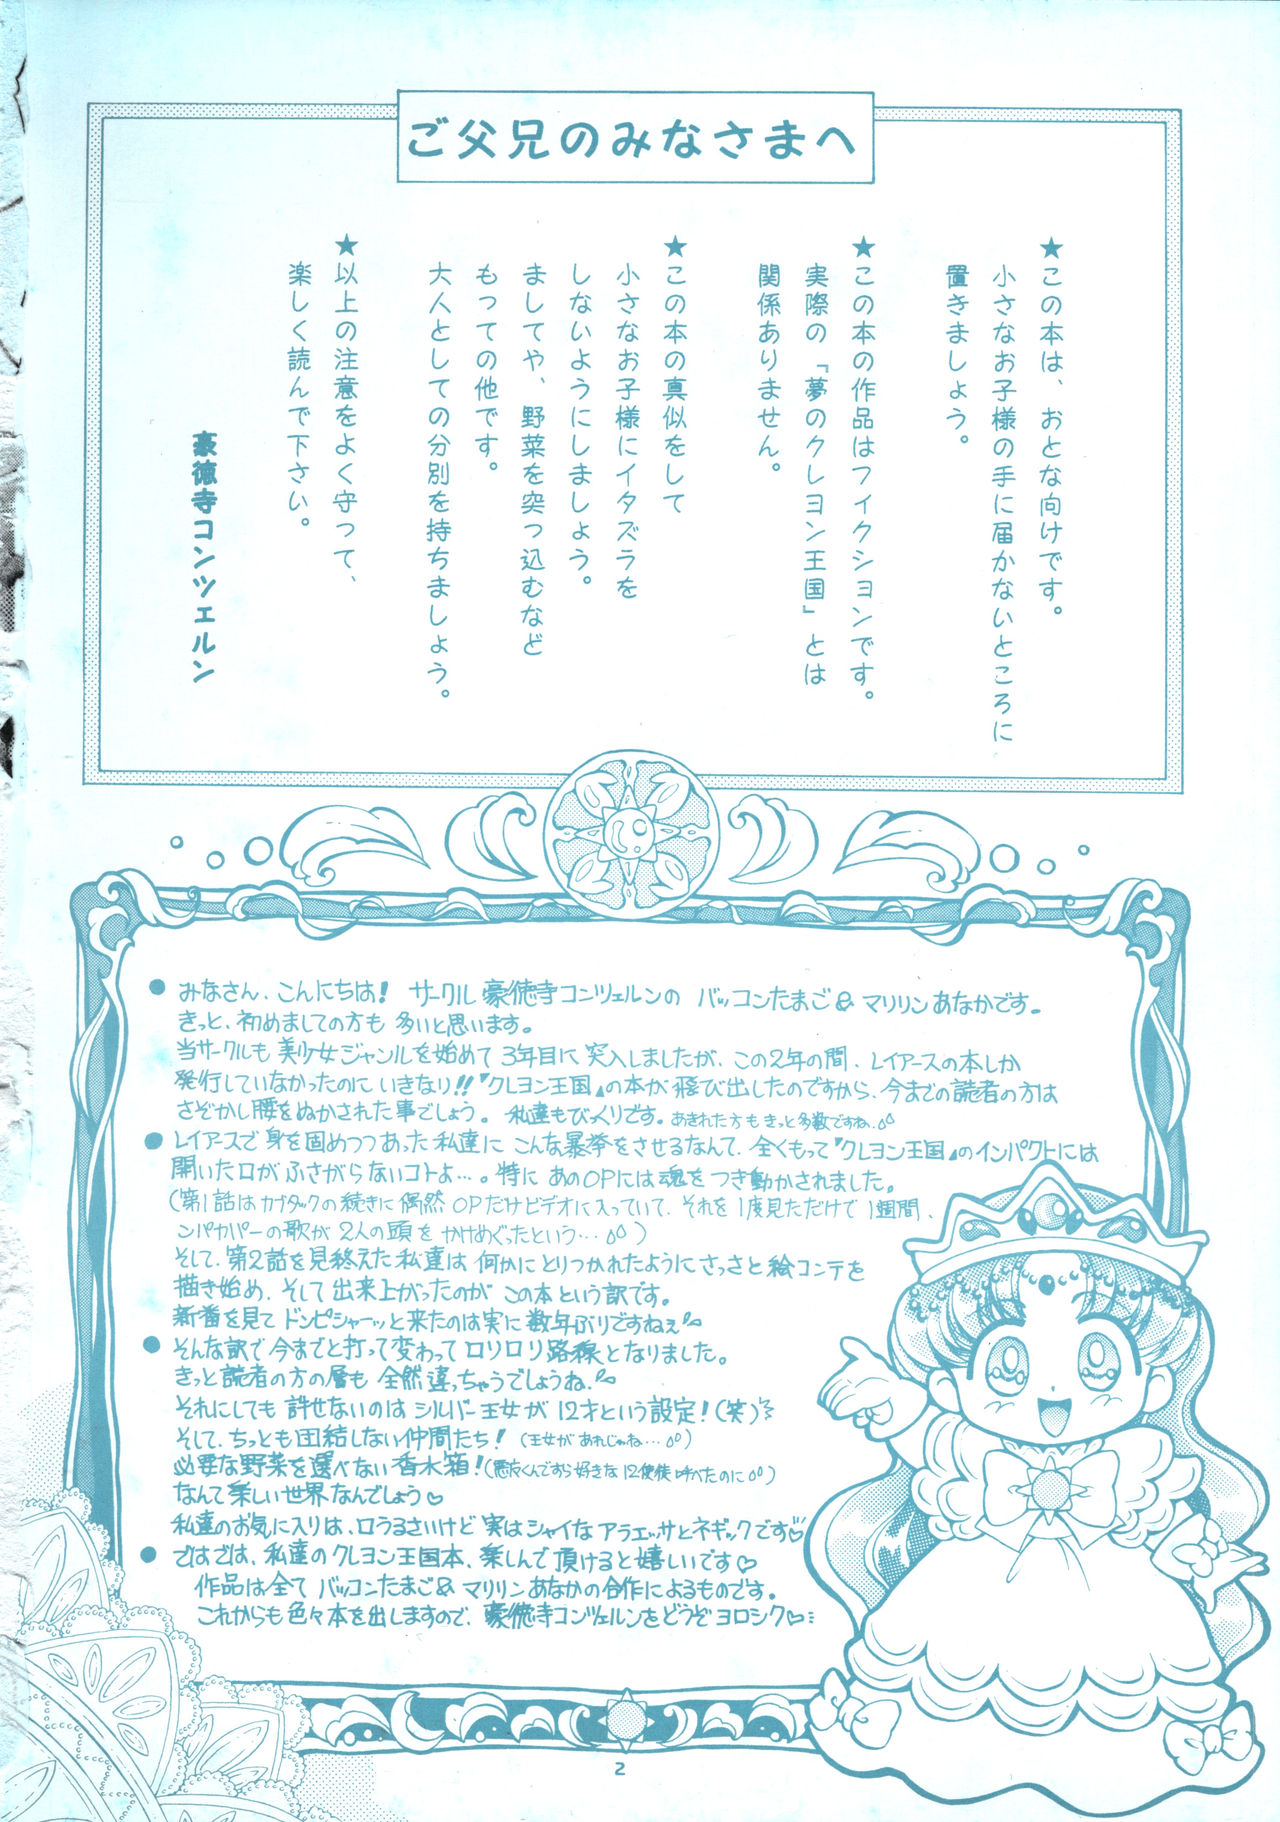 ご父兄のみなさまへ
★この本は、おとな向けです。
小さなお子様の手に届かないところに
置きましょう。
★この本の作品はフィクションです。
実際の「夢のクレヨン王国」とは
関係ありません。
★この本の真似をして
小さなお子様にイタズラを
しないようにしましょう。
ましてや、野菜を突っ込むなど
もっての他です。
大人としての分別を持ちましょう。
★以上の注意をよく守って、
楽しく読んで下さい。
豪徳寺コンツェルン
●みなさん、こんにちは! サークル豪徳寺コンツェルンの バッコンたまご&マリリンあなかです。
きっと、初めましての方も多いと思います。
当サークルも美少女ジャンルを始めて3年目に突入しましたが、この2年の間、レイアースの本しか
発行していなかったのにいきなり!!『クレヨン王国』の本が飛び出したのですから、今までの読者の方は
さぞかし腰をぬかされた事でしょう。私達もびっくりです。あきれた方もきっと多数ですね、
●レイアースで身を固めつつあった私達にこんな暴挙をさせるなんて、全くもって『クレヨン王国』のインパクトには
開いた口がふさがらないコトよ…。特にあのOPには魂をつき動かされました。
(第1話はカブタックの続きに偶然OPだけビデオに入っていて、それを1度見ただけで1週間、
ンパカパーの歌が2人の頭をかけめぐったという…)
そして、第2話を見終えた私達は何かにとりつかれたようにさっさと絵コンテを
描き始め、そして出来上がったのがこの本という訳です。
新番を見てドンピシャーッと来たのは実に数年ぶりですねぇ
●そんな訳で今までと打って変わってロリロリ路線となりました。
きっと読者の方の層も全然違っちゃうでしょうね、
それにしても許せないのはシルバー王女が12才という設定!(笑)
そして、ちっとも団結しない仲間たち!(王女があれじゃね…)
必要な野菜を選べない香水箱!(悪友くんですら好きな12使徒呼べたのに)
なんて楽しい世界なんでしょう♡
私達のお気に入りは、口うるさいけど実はシャイなアラエッサとネギックです♡
●ではでは、私達のクレヨン王国本、楽しんで頂けると嬉しいです♡
作品は全てバッコンたまご&マリリンあなかの合作によるものです。
これからも色々本を出しますので、豪徳寺コンツェルンをどうぞヨロシク♡
2